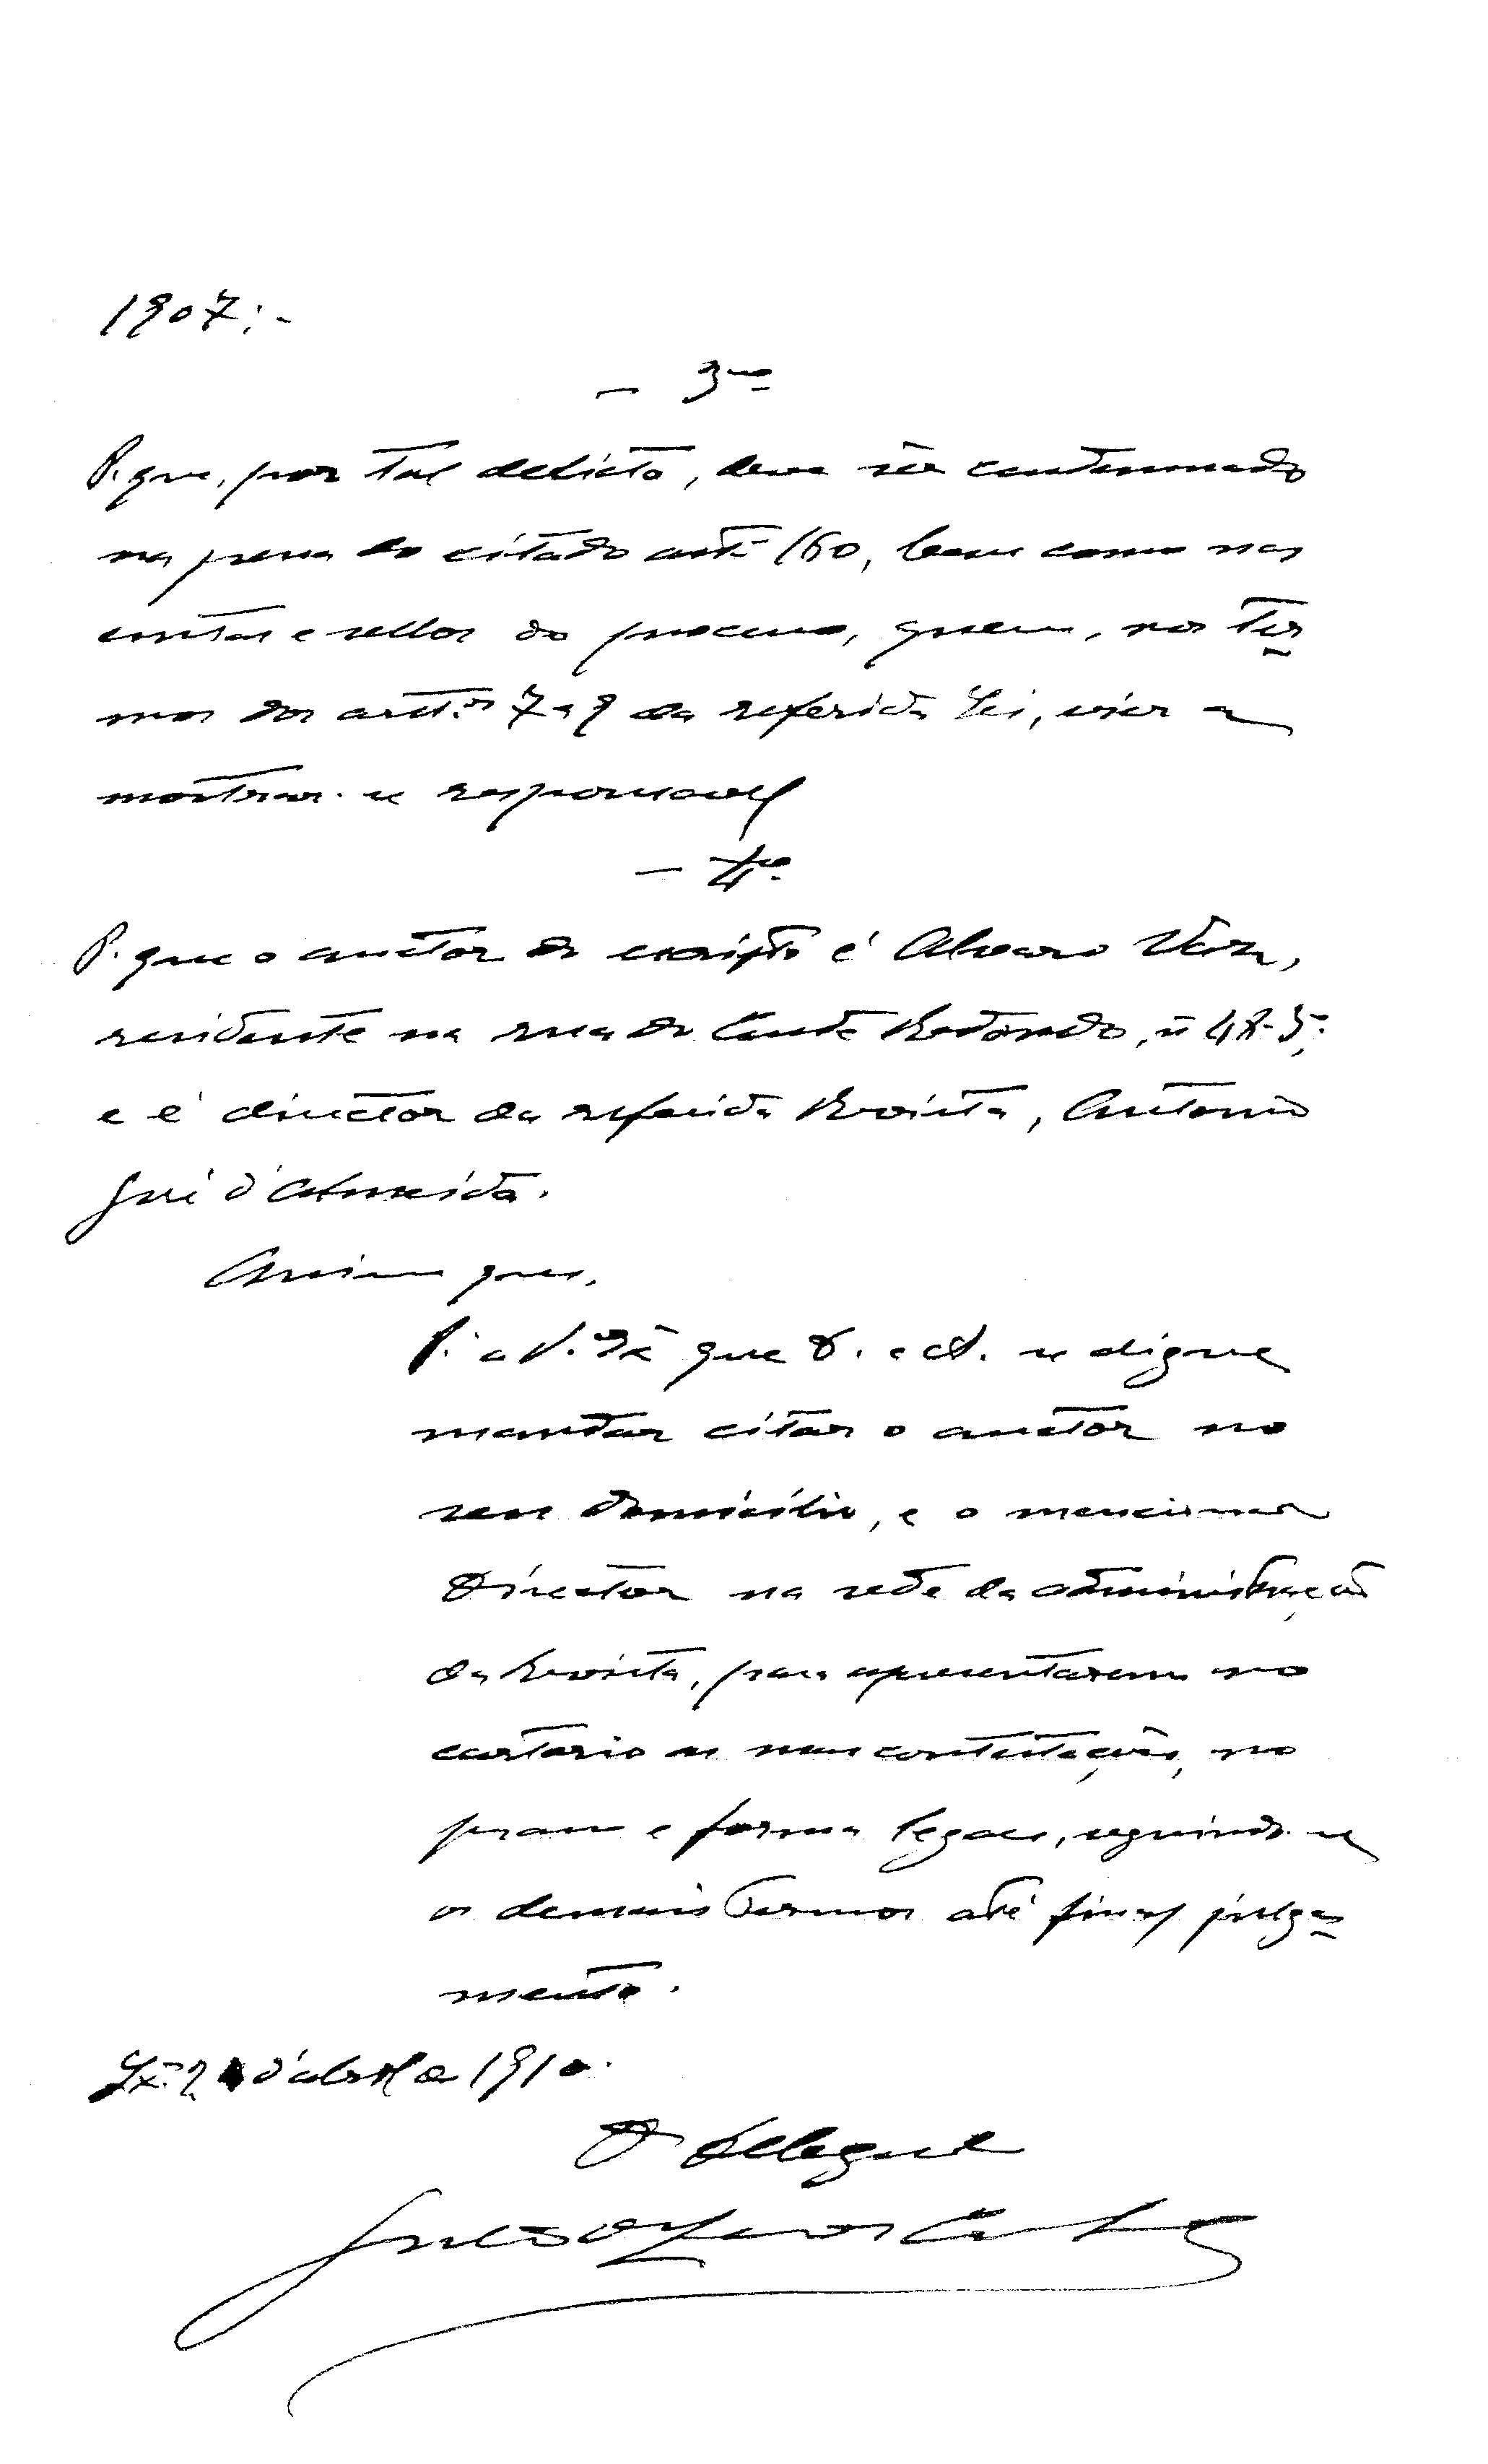 1907:-
- 3º
P. que, por tal delicto, deve ser condemnado
na pena do citado artº 160, bem como nas
custas e sellos do processo, quem, nos ter
mos dos artt.os 7 a 9 da referida Lei, vier a
mostrar-se responsavel
- 4º
P. que o auctor do escripto é Alvaro Vaz,
residente na rua do Conde Redondo, nº 48-5º;
e é director da referida Revista, Antonio
José d'Almeida.
Assim pois,
P. a V. Exª que D. e A. se digne
mandar citar o auctor no
seu domicilio, e o mencionado
Director na sede da administração
da Revista, para apresentarem no
cartorio as suas contestações, no
praso e forma legaes, seguindo-se
os demais termos até final julga
mento.
Lxª 2 d'abril de 1910.
O Delegado